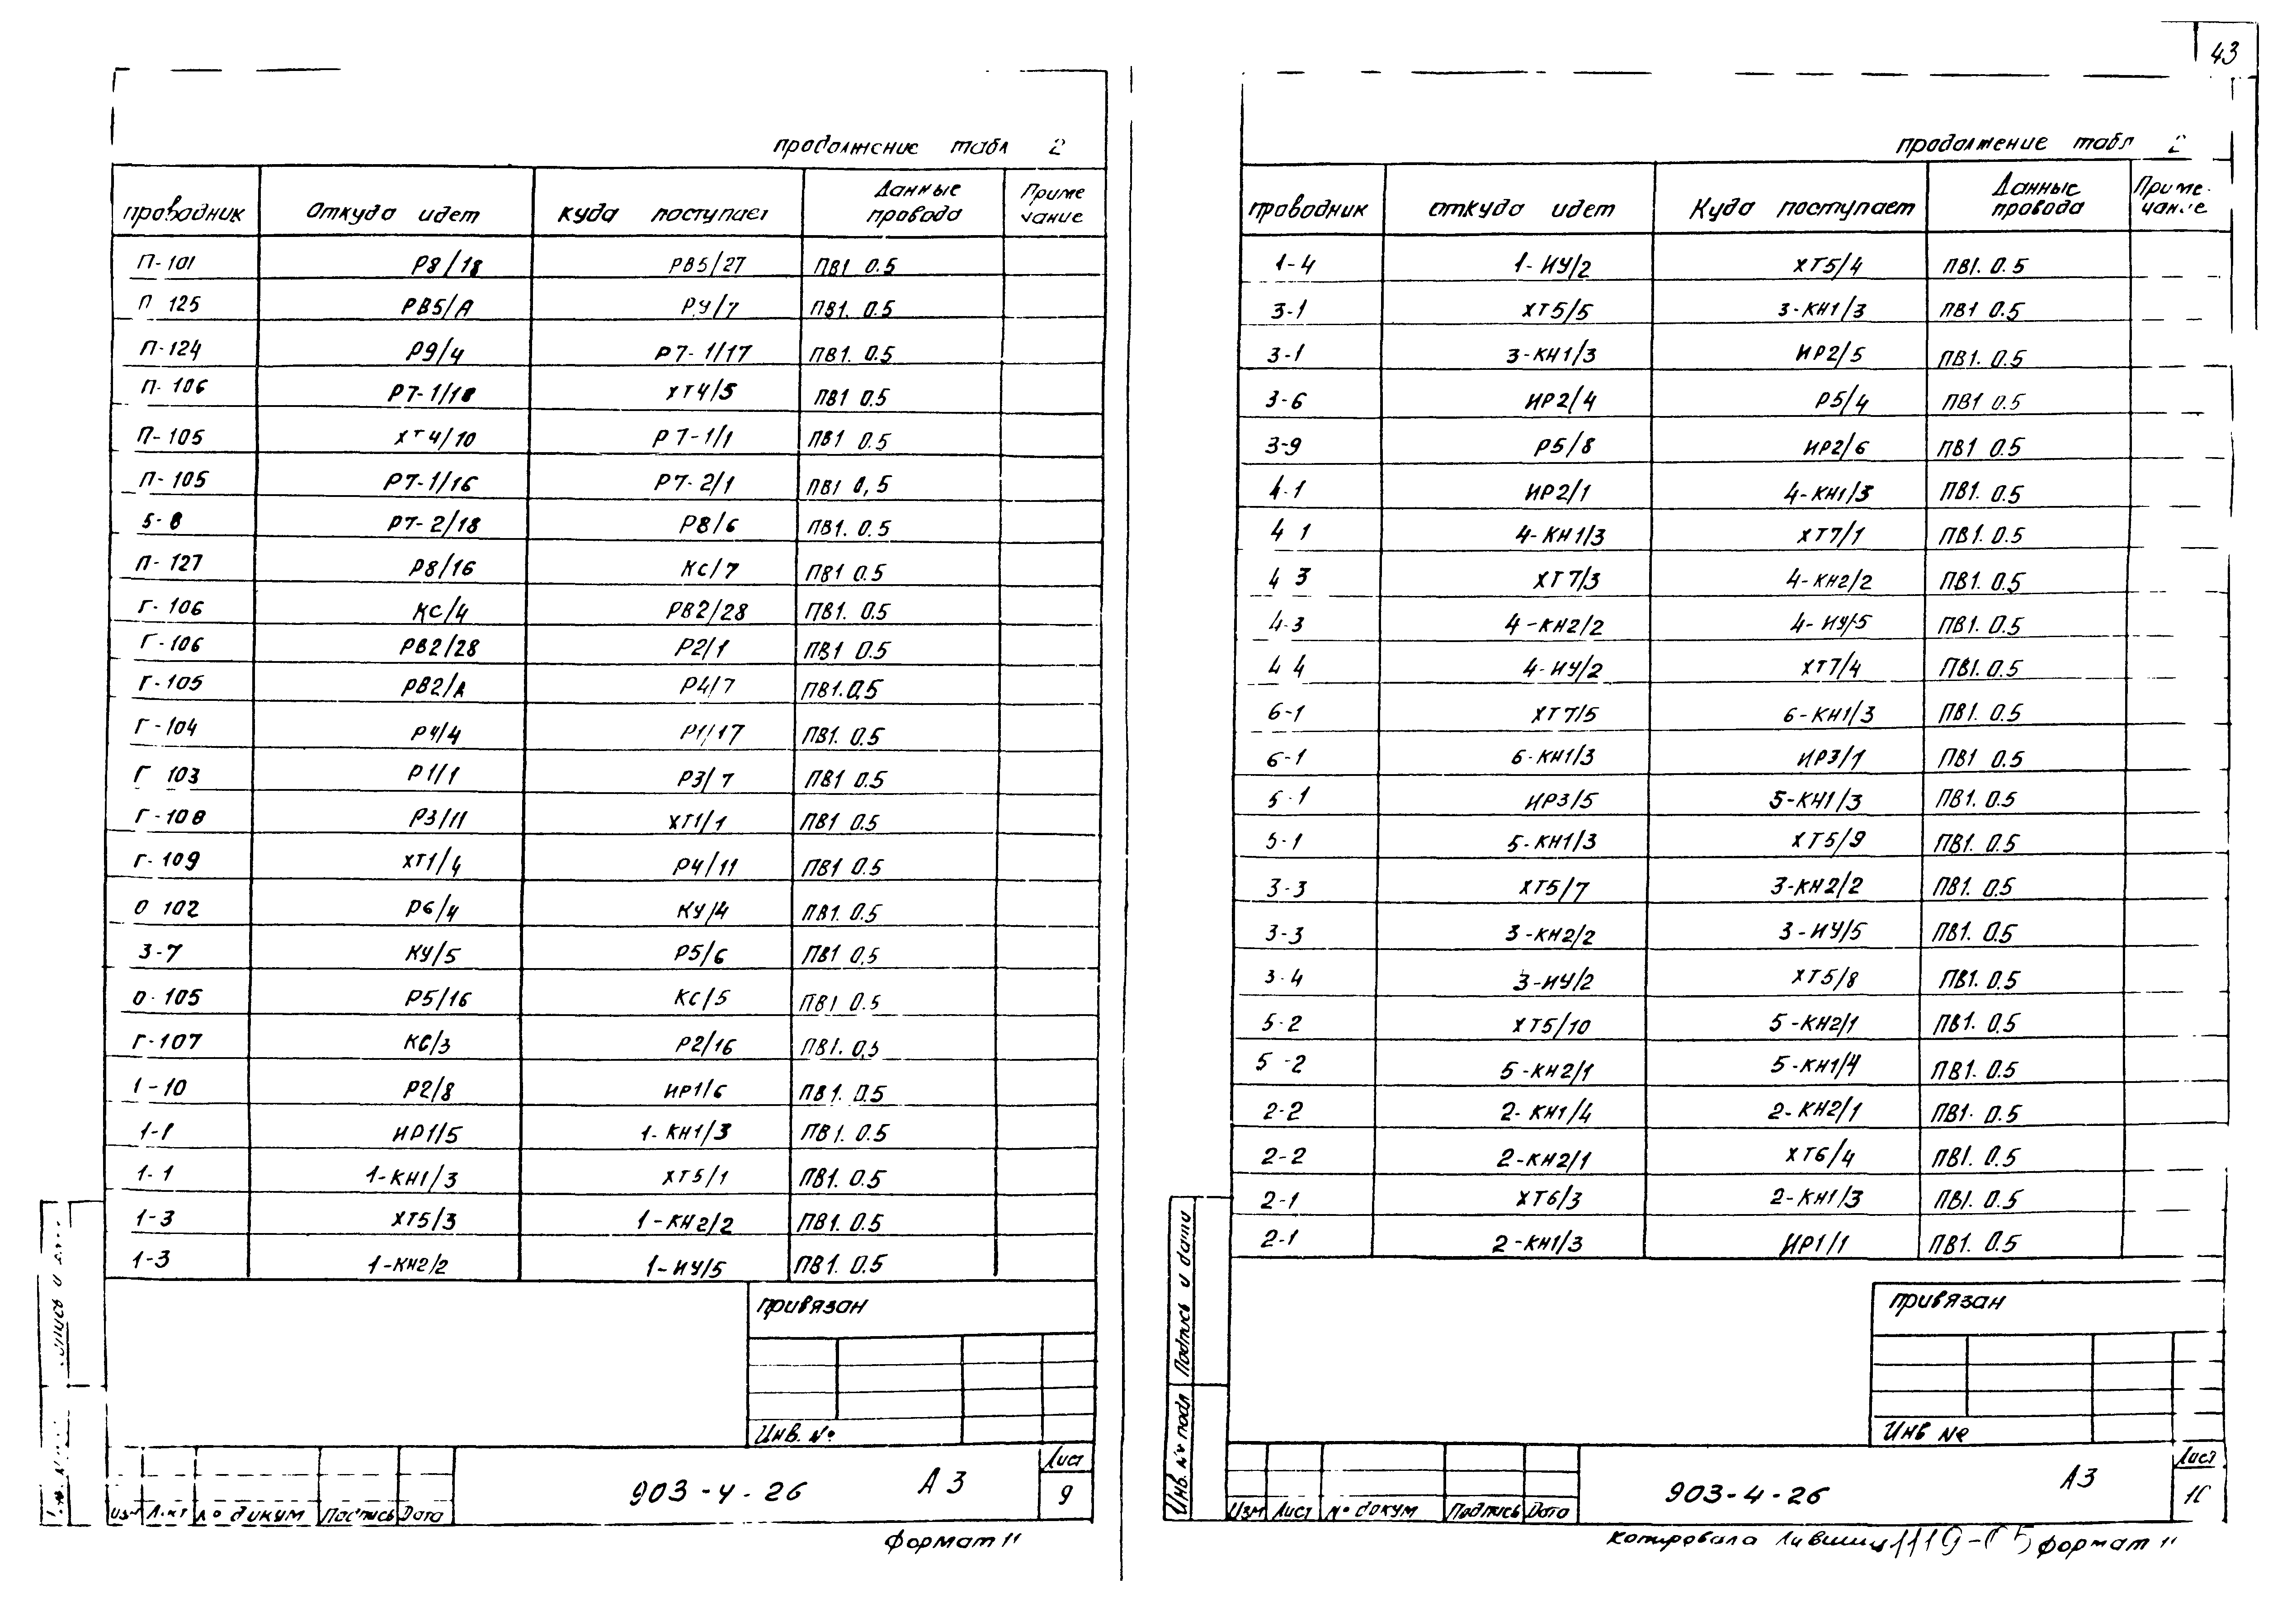 43
продолжение табл 2
проводник Откуда идет куда поступает Данные провода Приме чание
П-101 Р8/18 РВ5/27 ПВ1 0.5
П 125 РВ5/А РУ/7 ПВ1. 0.5
П-124 Р9/4 Р7-1/17 ПВ1. 0.5
П-106 Р7-1/18 ХТ4/5 ПВ1 0.5
П-105 ХТ4/10 Р7-1/1 ПВ1 0.5
П-105 Р7-1/16 Р7-2/1 ПВ1 0,5
5-8 Р7-2/18 Р8/6 ПВ1. 0.5
П-127 Р8/16 КС/7 ПВ1 0.5
Г-106 КС/4 РВ2/28 ПВ1. 0.5
Г-106 РВ2/28 Р2/1 ПВ1 0.5
Г-105 РВ2/А Р4/7 ПВ1.0,5
Г-104 Р4/4 Р1/17 ПВ1. 0.5
Г 103 Р1/1 Р3/7 ПВ1 0.5
Г-108 Р3/11 ХТ1/1 ПВ1 0.5
Г-109 ХТ1/4 Р4/11 ПВ1 0.5
О 102 Р6/4 КУ/4 ПВ1. 0.5
3-7 КУ/5 Р5/6 ПВ1 0,5
О-105 Р5/16 КС/5 ПВ1 0.5
Г-107 КС/3 Р2/16 ПВ1. 0,5
1-10 Р2/8 ИР1/6 ПВ1. 0.5
1-1 ИР1/5 1-КН1/3 ПВ1. 0.5
1-1 1-КН1/3 ХТ5/1 ПВ1. 0.5
1-3 ХТ5/3 1-КН2/2 ПВ1. 0.5
1-3 1-КН2/2 1-ИУ/5 ПВ1. 0.5
привязан
Инв. №
903-4-26 А3 Лист 9
Изм Лист № докум Подпись Дата
Формат 11
продолжение табл 2
проводник откуда идет Куда поступает Данные провода Приме-чание
1-4 1-ИУ/2 ХТ5/4 ПВ1. 0.5
3-1 ХТ5/5 3-КН1/3 ПВ1 0.5
3-1 3-КН1/3 ИР2/5 ПВ1. 0.5
3-6 ИР2/4 Р5/4 ПВ1 0.5
3-9 Р5/8 ИР2/6 ПВ1 0.5
4-1 ИР2/1 4-КН1/3 ПВ1. 0.5
4 1 4-КН1/3 ХТ7/1 ПВ1. 0.5
4 3 ХТ7/3 4-КН2/2 ПВ1. 0.5
4-3 4-КН2/2 4-ИУ/5 ПВ1. 0.5
4 4 4-ИУ/2 ХТ7/4 ПВ1. 0.5
6-1 ХТ7/5 6-КН1/3 ПВ1. 0.5
6-1 6-КН1/3 ИР3/1 ПВ1 0.5
5-1 ИР3/5 5-КН1/3 ПВ1. 0.5
5-1 5-КН1/3 ХТ5/9 ПВ1. 0.5
3-3 ХТ5/7 3-КН2/2 ПВ1. 0.5
3-3 3-КН2/2 3-ИУ/5 ПВ1. 0.5
3-4 3-ИУ/2 ХТ5/8 ПВ1. 0.5
5-2 ХТ5/10 5-КН2/1 ПВ1. 0.5
5-2 5-КН2/1 5-КН1/4 ПВ1. 0.5
2-2 2-КН1/4 2-КН2/1 ПВ1. 0.5
2-2 2-КН2/1 ХТ6/4 ПВ1. 0.5
2-1 ХТ6/3 2-КН1/3 ПВ1. 0.5
2-1 2-КН1/3 ИР1/1 ПВ1. 0.5
Инв. № подл Подпись и дата
привязан
Инв №
903-4-26 А3 Лист 10
Изм Лист № докум Подпись Дата
копировала формат 11